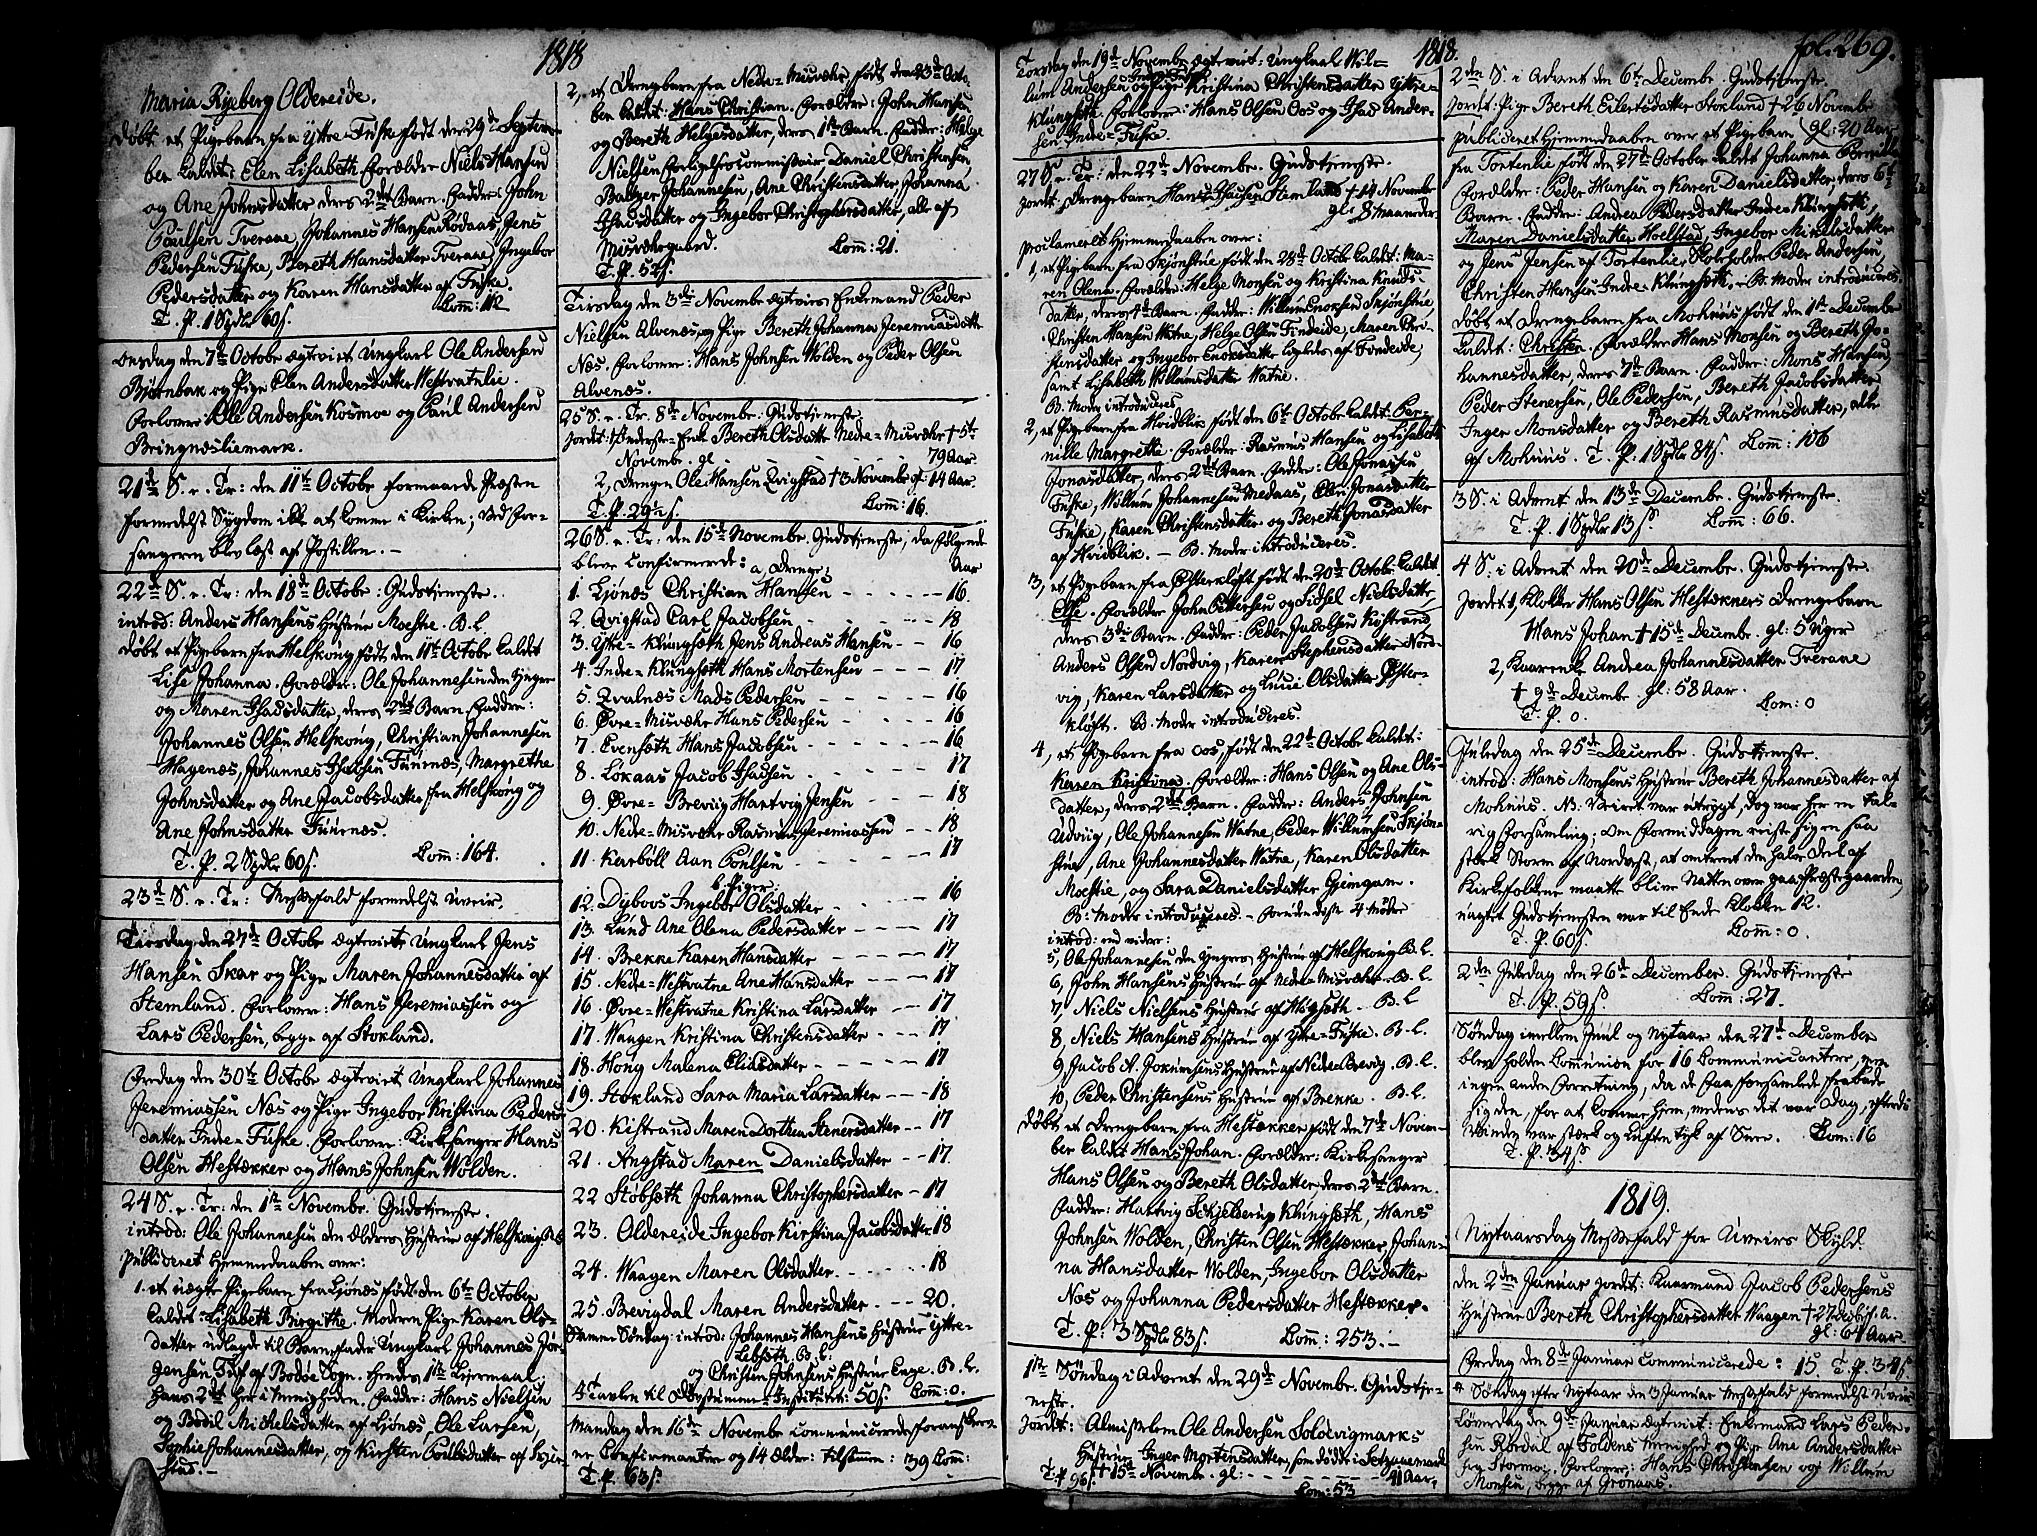 1818
Maria Ryeberg Oldereide.
døbt et Pigebarn fra Yttre-Fuske født den 29de Septem-
ber kaldet: Elen Lisabeth. Forældre Niels Hansen
og Ane Johnsdatter deres 2det Barn. Faddre: John
Poulsen Tveraae, Johannes Hansen Rødaas, Jens
Pedersen Fuske, Bereth Hansdatter Tveraae, Ingebor
Pedersdatter og Karen Hansdatter af Fuske.
T. P. 1 Spdlr 60 s. Com: 112
Onsdag den 7de Octobr ægteviet Ungkarl Ole Andersen
Bjørnbak og Pige Elen Andersdatter Westvatnlie.
Forlover: Ole Andersen Kosmoe og Paul Andersen
Bringnesliemark.
21de S. e. Tr: den 11te Octobr formaaede Præsten
formedelst Sygdom ikke at komme i Kirken; ved For-
sangeren blev læst af Postillen. -
22de S. e. Tr: den 18de Octobr. Gudstjeneste.
introd: Anders Hansens Hustrue Moestue. B. L.
døbt et Pigebarn fra Helskong født den 11te Octobr kaldet
Lise Johanna. Forældre: Ole Johannesen den Yngre
og Maren Isaksdatter, deres 2det Barn. Faddre:
Johannes Olsen Helskong, Christian Johannesen
Hagenæs, Johannes Isaksen Fuurnæs, Margrethe
Johnsdatter og Ane Jacobsdatter fra Helskong og
Ane Johnsdatter Fuurnæs.
T. P. 2 Spdlr 60 s. Com: 164.
23de S. e. Tr: Messefald formedelst Uveir.
Tiirsdag den 27de Octobr ægteviet Ungkarl Jens
Hansen Skar og Pige Maren Johannesdatter af
Stemland. Forlover: Hans Jeremiassen og
Lars Pedersen, begge af Stokland.
Fredag den 30te Octobr ægteviet Ungkarl Johannes
Jeremiassen Næs og Pige Ingebor Kristina Peders-
datter Indre-Fuske. Forlover: Kirkesanger Hans
Olsen Hestækker og Hans Johnsen Wolden.
24 S. e. Tr: den 1ste Novembr. Gudstjeneste.
introd: Ole Johannesen den Ældres Hustrue af Helskong B. L.
publiceret Hjemmedaaben over:
1. et uægte Pigebarn fra Ljønæs født den 6te October
kaldet Lisabeth Birgithe. Modren Pige Karen Ols-
datter udlagde til Barnefader Ungkarl Johannes Jør-
gensen Tuf af Bodøe Sogn. Hendes 1ste Leiermaal,
hans 2det her i Menigheden. Faddre: Hans Nielsen
og Bodil Mickelsdatter af Ljønæs, Ole Larsen,
Sophie Johannesdatter, og Kirsten Poulsdatter af
stad. -
1818
2, et Drengebarn fra Nedre-Misvær, født den 23de Octo-
ber kaldet: Hans Christian. Forældre: John Hansen
og Bereth Helgesdatter, deres 1ste Barn. Faddre: Helge
Nielsen Forligelsescommissair, Daniel Christensen,
Baltzer Johannesen, Ane Christensdatter, Johanna
Isaksdatter og Ingebor Christophersdatter, alle af
Misværgaard. Com: 21.
T. P. 52 s.
Tiirsdag den 3die Novembr ægteviet Enkemand Peder
Nielsen Alvenæs og Pige Bereth Johanna Jeremiasdatter
Næs. Forlover: Hans Johnsen Wolden og Peder Olsen
Alvenæs.
25 S. e. Tr. 8de Novembr. Gudstjeneste.
jordet: 1, Inderste-Enke Bereth Olsdatter Nedre-Misvær † 5te
Novembr. gl - - - - 79 Aar
2, Drengen Ole Hansen Qvigstad † 3 Novembr gl: 14 Aar
T. P. 29 1/2 s. Com: 16.
26 S. e. Tr. den 15de Novembr. Gudstjeneste, da følgende
bleve confirmerede: a, Drenge: Aar
1. Ljønæs Christian Hansen - - - - 16.
2. Qvigstad Carl Jacobsen - - - - 18
3. Yttre-Klungseth Jens Andreas Hansen - 16
4. Indre-Klungseth Hans Mortensen - - - 17
5. Qvalnæs Mads Pedersen - - - - 16
6. Øvre-Misvær Hans Pedersen - - - - 16
7. Evenseth Hans Jacobsen - - - - 16
8. Løkaas Jacob Isaksen - - - - 17
9. Øvre-Brevig Hartvig Jensen - - - 18
10. Nedre-Misvær Rasmus Jeremiassen - - 18
11. Karbøll Aan Poulsen - - - - 17
b. Piger:
12. Dybvos Ingebor Olsdatter - - - - 16
13. Lund Ane Olena Pedersdatter - - - 17
14. Brekke Karen Hansdatter - - - - 17
15. Nedre-Westvatne Ane Hansdatter - - - 17
16. Øvre-Westvatne Kristina Larsdatter - - - 17
17. Waagen Kristina Christensdatter - - - 17
18. Hong Malena Eliasdatter - - - - 17
19. Stokland Sara Maria Larsdatter - - - 18
20. Kistrand Maren Dorthea Stenersdatter - - 17
21. Angstad Maren Danielsdatter - - 17.
22 Støbseth Johanna Christophersdatter - 17
23. Oldereide Ingebor Kirstina Jacobsdatter 18
24. Waagen Maren Olsdatter. - - - - 18
25. Bevigdal Maren Andersdatter - - - 20.
Samme Søndag: introd: Johannes Hansens Hustrue Yttre-
Lebseth. B. L.
og Christen Johnsens Hustrue Enge. B. L.
T. Tavlen til Døvstumme-Institutet: 50 s. Com: 0.
Mandag den 16de Novembr communicerede foranskrev-
ne Confirmanter og 14 ældre: tilsammen: 39 Com:
T. P. 63 s.
1818.
Torsdag den 19de Novembr ægteviet: Ungkarl Wil-
lum Andersen Indre-Fuske og Pige Kristina Christensdatter Yttre-
Klungseth. Forlover: Hans Olsen Oos og Isak Ander-
sen Indre-Fuske.
27 S. e. Tr: den 22de Novembr. Gudstjeneste.
jordet: Drengebarn Hans Isaksen Stemland † 14 Novembr
gl: 8 Maaneder
proclameret Hjemmedaaben over:
1, et Pigebarn fra Skjønstue født den 28de Octobr kaldet: Ma-
ren Olena. Forældre: Helge Monsen og Kristina Knuds-
datter, deres 4de Barn. Faddre: Willum Enoksen Skjønstue,
Christen Hansen Watne, Helge Olsen Findeide, Maren Chri-
stensdatter og Ingebor Enoksdatter begge af Findeide,
samt Lisabeth Willumsdatter Watne.
B. Moder introduceres.
2, et Pigebarn fra Hvidblik født den 6te Octobr kaldet: Per-
nille Margrethe. Forældre: Rasmus Hansen og Lisabeth
Jonasdatter, deres 2det Barn. Faddre: Ole Jonassen
Fuske, Willum Johannesen Medaas, Elen Jonasdatter
Fuske, Karen Christensdatter og Bereth Jonasdatter
af Hvidblik. - B. Moder introduceres.
3, et Pigebarn fra Østerkløft født den 20de Octobr kaldet
Else. Forældre John Pettersen og Sidsel Nielsdatter,
deres 3die Barn. Faddre: Peder Jacobsen Kistrand,
Anders Olsen Nordvig, Karen Stephensdatter Nord-
vig, Karen Larsdatter og Lucie Olsdatter Øster-
kløft. B. Moder introduceres.
4, et Pigebarn fra Oos født den 22de Octobr kaldet:
Karen Kristina. Forældre: Hans Olsen og Ane Ols-
datter, deres 2det Barn. Faddre: Anders Johnsen
Udvig, Ole Johannesen Watne, Peder Willumsen Skjøn-
stue, Ane Johannesdatter Watne, Karen Olsdatter
Moestie, og Sara Danielsdatter Gjemgam.
B: Moder introduceres. - Foruden disse 4 Mødre
introd: end videre:
5, Ole Johannesen den Yngres Hustrue af Helskong B. L.
6, John Hansens Hustrue af Nedre Misvær. B. L.
7, Niels Nielsens Hustrue af Høgseth. B. L
8, Niels Hansens Hustrue af Yttre-Fuske. B. L.
9 Jacob A. Jokumsens Hustrue af Nedre Brevig. B. L.
10, Peder Christensens Hustrue af Brekke. B. L.
døbt et Drengebarn fra Hestækker født den 7de Novem-
ber kaldet Hans Johan. Forældre: Kirkesanger
Hans Olsen og Bereth Olsdatter, deres 2det Barn.
Faddre: Hartvig Schjelderup Klungseth, Hans
Johnsen Wolden, Christen Olsen Hestækker, Johan-
na Hansdatter Wolden, Ingebor Olsdatter
Næs og Johanna Pedersdatter Hestækker.
T. P. 3 Spdlr 83 s. Com: 253. -
1ste Søndag i Advent den 29de Novembr. Gudstje-
neste.
Jordet: Almisselem Ole Andersen Solsvigmarks
Hustrue Inger Mortensdatter, som døde i Setzaamark
† 15de Novembr. gl: - - - - 41 Aar.
T. P. 96 s. Com: 53
fol: 269.
2den S. i Advent den 6te Decembr. Gudstjeneste.
Jordet: Pige Bereth Eilertsdatter Stokland † 26 Novembr
gl: 20 Aar
publiceret Hjemmedaaben over et Pigebarn
fra Tortenlie født den 27de October kaldet Johanna Pernille
Forældre: Peder Hansen og Karen Danielsdatter, deres 6te
Barn. Faddre: Andrea Pedersdatter Indre-Klungseth,
Maren Danielsdatter Hoelstad, Ingebor Mikkelsdatter
og Jens Jensen af Tortenlie, Skoleholder Peder Andersen,
Christen Hansen Indre-Klungseth. - B. Moder introduceres.
døbt et Drengebarn fra Mohuus født den 1ste Decembr
kaldet: Christen. Forældre Hans Monsen og Bereth Jo-
hannesdatter, deres 7de Barn. Faddre: Mons Hansen,
Peder Stenersen, Ole Pedersen, Bereth Jacobsdatter
Inger Monsdatter og Bereth Rasmusdatter, alle
af Mohuus. T. P. 1 Spdlr 84 s. Com: 106
3 S. i Advent den 13de Decembr. Gudstjeneste.
T. P. 1 Spdlr 13 s. Com: 66.
4 S. i Advent den 20de Decembr. Gudstjeneste.
Jordet 1, Klokker Hans Olsen Hestækners Drengebarn
Hans Johan † 15de Decembr. gl: 5 Uger
2, Kaarenke Andrea Johannesdatter Tveraae
† 9de Decembr. gl: 58 Aar.
T. P. 0. Com: 0
Juledag den 25de Decembr. Gudstjeneste.
introd: Hans Monsens Hustrue Bereth Johannesdatter af
Mohuus. NB: Veiret var utrygt, dog var her en tal-
rig Forsamling; om Formiddagen reiste sig en saa
stærk Storm af Nordvest, at omtrent den halve Deel af
Kirkefolkene maatte blive Natten over paa Præstegaarden,
uagtet Gudstjenesten var til Ende Klokken 12.
T. P. 60 s. Com: 0.
2den Juledag den 26de December. Gudstjeneste
T. P. 59 s. Com: 27.
Søndag imellem Juul og Nytaar den 27de December
blev holden Communion for 16 Communicantere, men
ingen anden Forretning, da de faa forsamlede frabade
sig den, for at komme hjem, medens det var Dag, efterdi
Vinden var stærk og Luften tyk af Snee. Com: 16
T. P. 34 s
1819.
Nytaarsdag Messefald for Uveirs Skyld.
den 2den Januar jordet: Kaarmand Jacob Pedersens
Hustrue Bereth Christophersdatter Waagen † 27 Decbr f. A.
gl: 64 Aar
Fredag den 8de Januar communicerede: 15. T. P. 34 s
* Søndag efter Nytaar den 3 Januar Messefald formedelst Uveir
Løverdag den 9de Januar ægteviet: Enkemand Lars Peder-
sen Rørdal af Foldens Menighed og Pige Ane Andersdatter
fra Stormoe. Forlover: Hans Christensen og Willum
Monsen, begge af Grønaas.